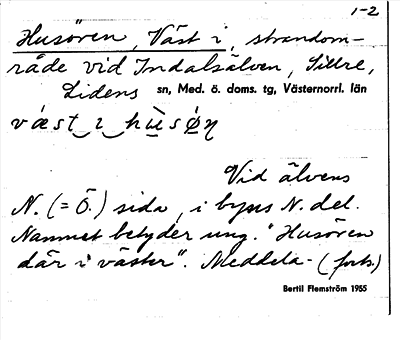 1-2
Husören, Väst i, strandom-
råde vid Indalsälven, Sillre,
Lidens sn, Med. ö. doms. tg, Västernorrl. län
væst‿ɩ‿hùsø̀ɳ
Vid älvens
N. (=Ö.) sida, i byns N. del.
Namnet betyder ung. "Husören
där i väster". Meddela- (forts.)
Bertil Flemström 1955